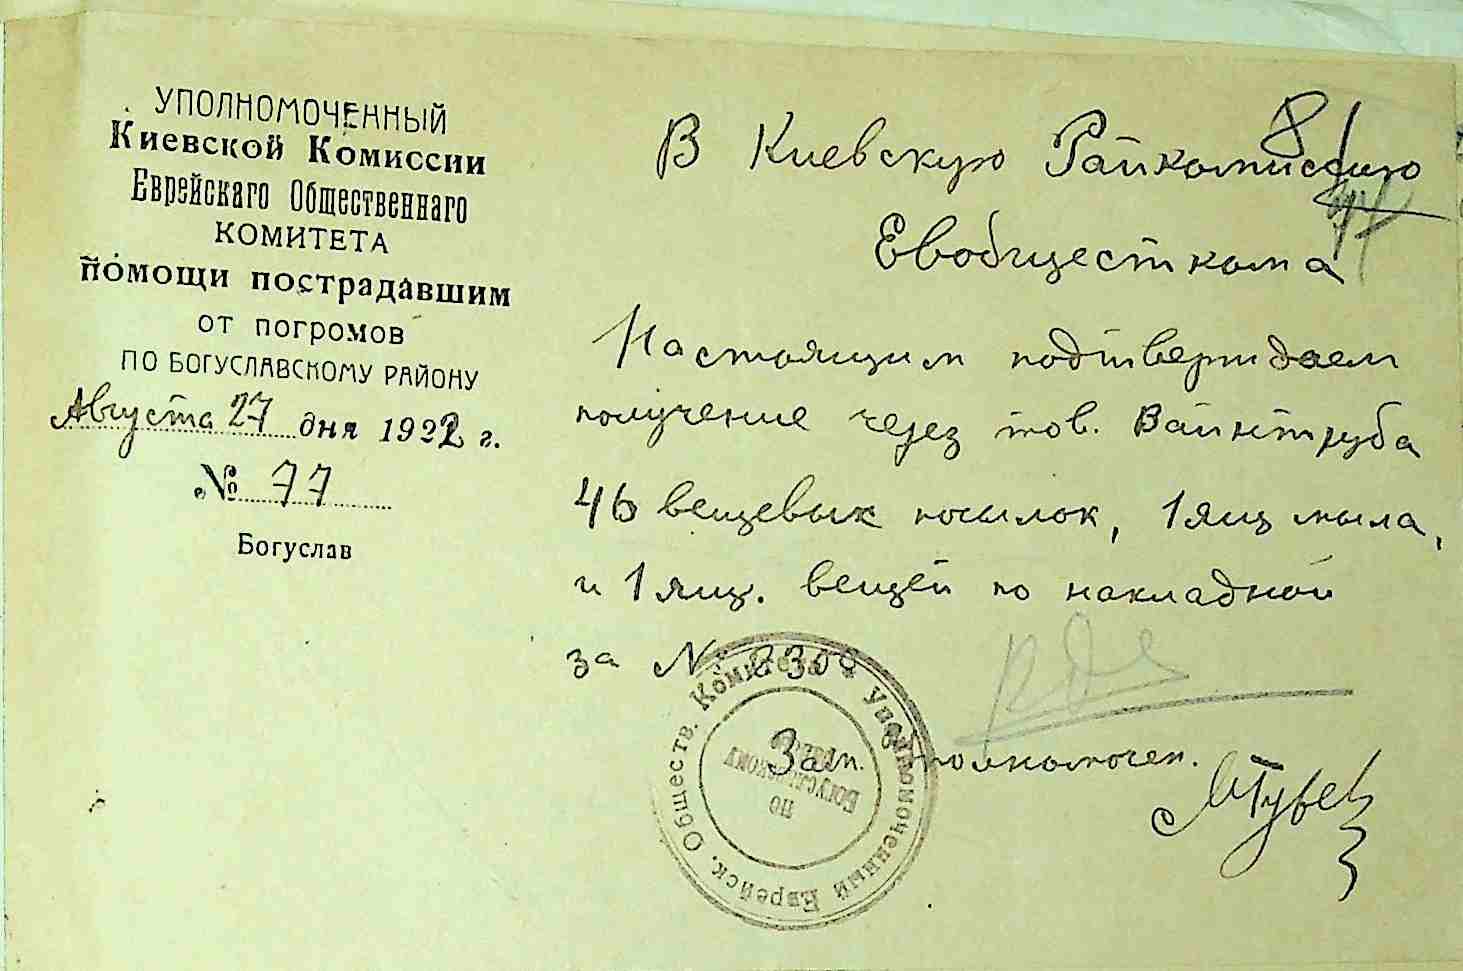 УПОЛНОМОЧЕННЫЙ
Киевской Комиссии
Еврейскаго Общественнаго
КОМИТЕТА
помощи пострадавшим
от погромов
ПО БОГУСЛАВСКОМУ РАЙОНУ
Августа 27 дня 1922 г.
№ 77
Богуслав
В Киевскую Райкомиссию
Евобщесткома
Настоящим подтверждаем
получение через тов. Вайнтруба
46 вещевых посылок, 1 ящ мыла,
и 1 ящ. вещей по накладной
за №
Зам. Уполномочен.
Уполномоченный Еврейск. Обществ. Комитета
по
Богуславскому
району